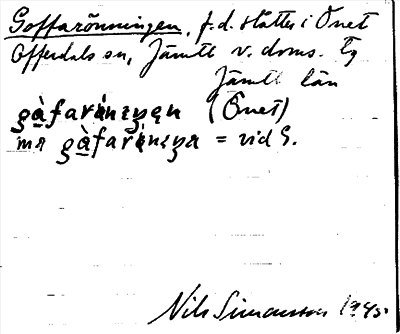 Goffarönningen, f.d. slåtter i Önet
Offerdals sn, Jämtl v. doms. Eg
Jämtl län
gàfarǿnıŋęn (Önet)
ma gàfarǿnıŋa = vid G.
Nils Simonsson 1945.